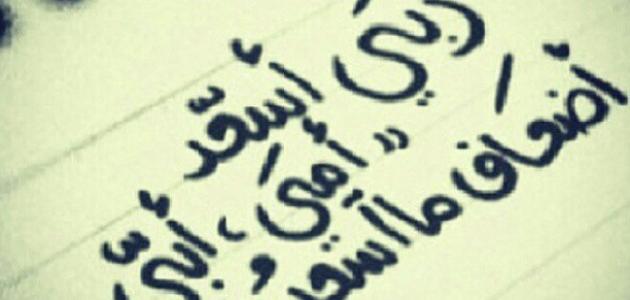 ربيَ أسعّد
" أميَ ، أبيّ
أضعاف ما